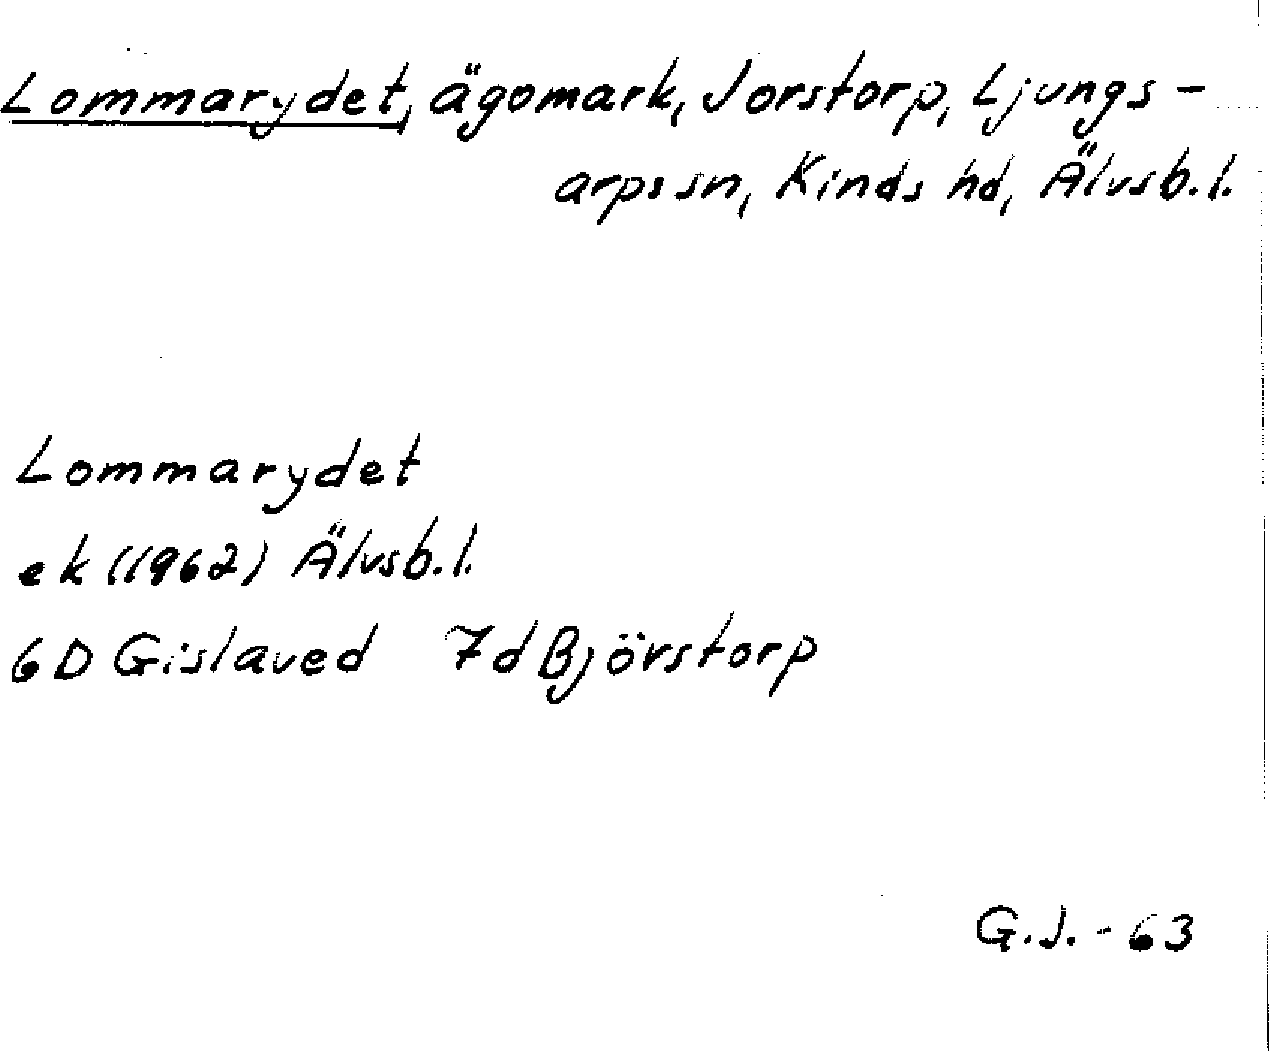 Lommarydet, ägomark, Jorstorp, Ljungs-
arps sn, Kinds hd, Älvsb.l.
Lommarydet
ek (1962) Älvsb.l.
6D Gislaved 7d Björstorp
G.J. - 63